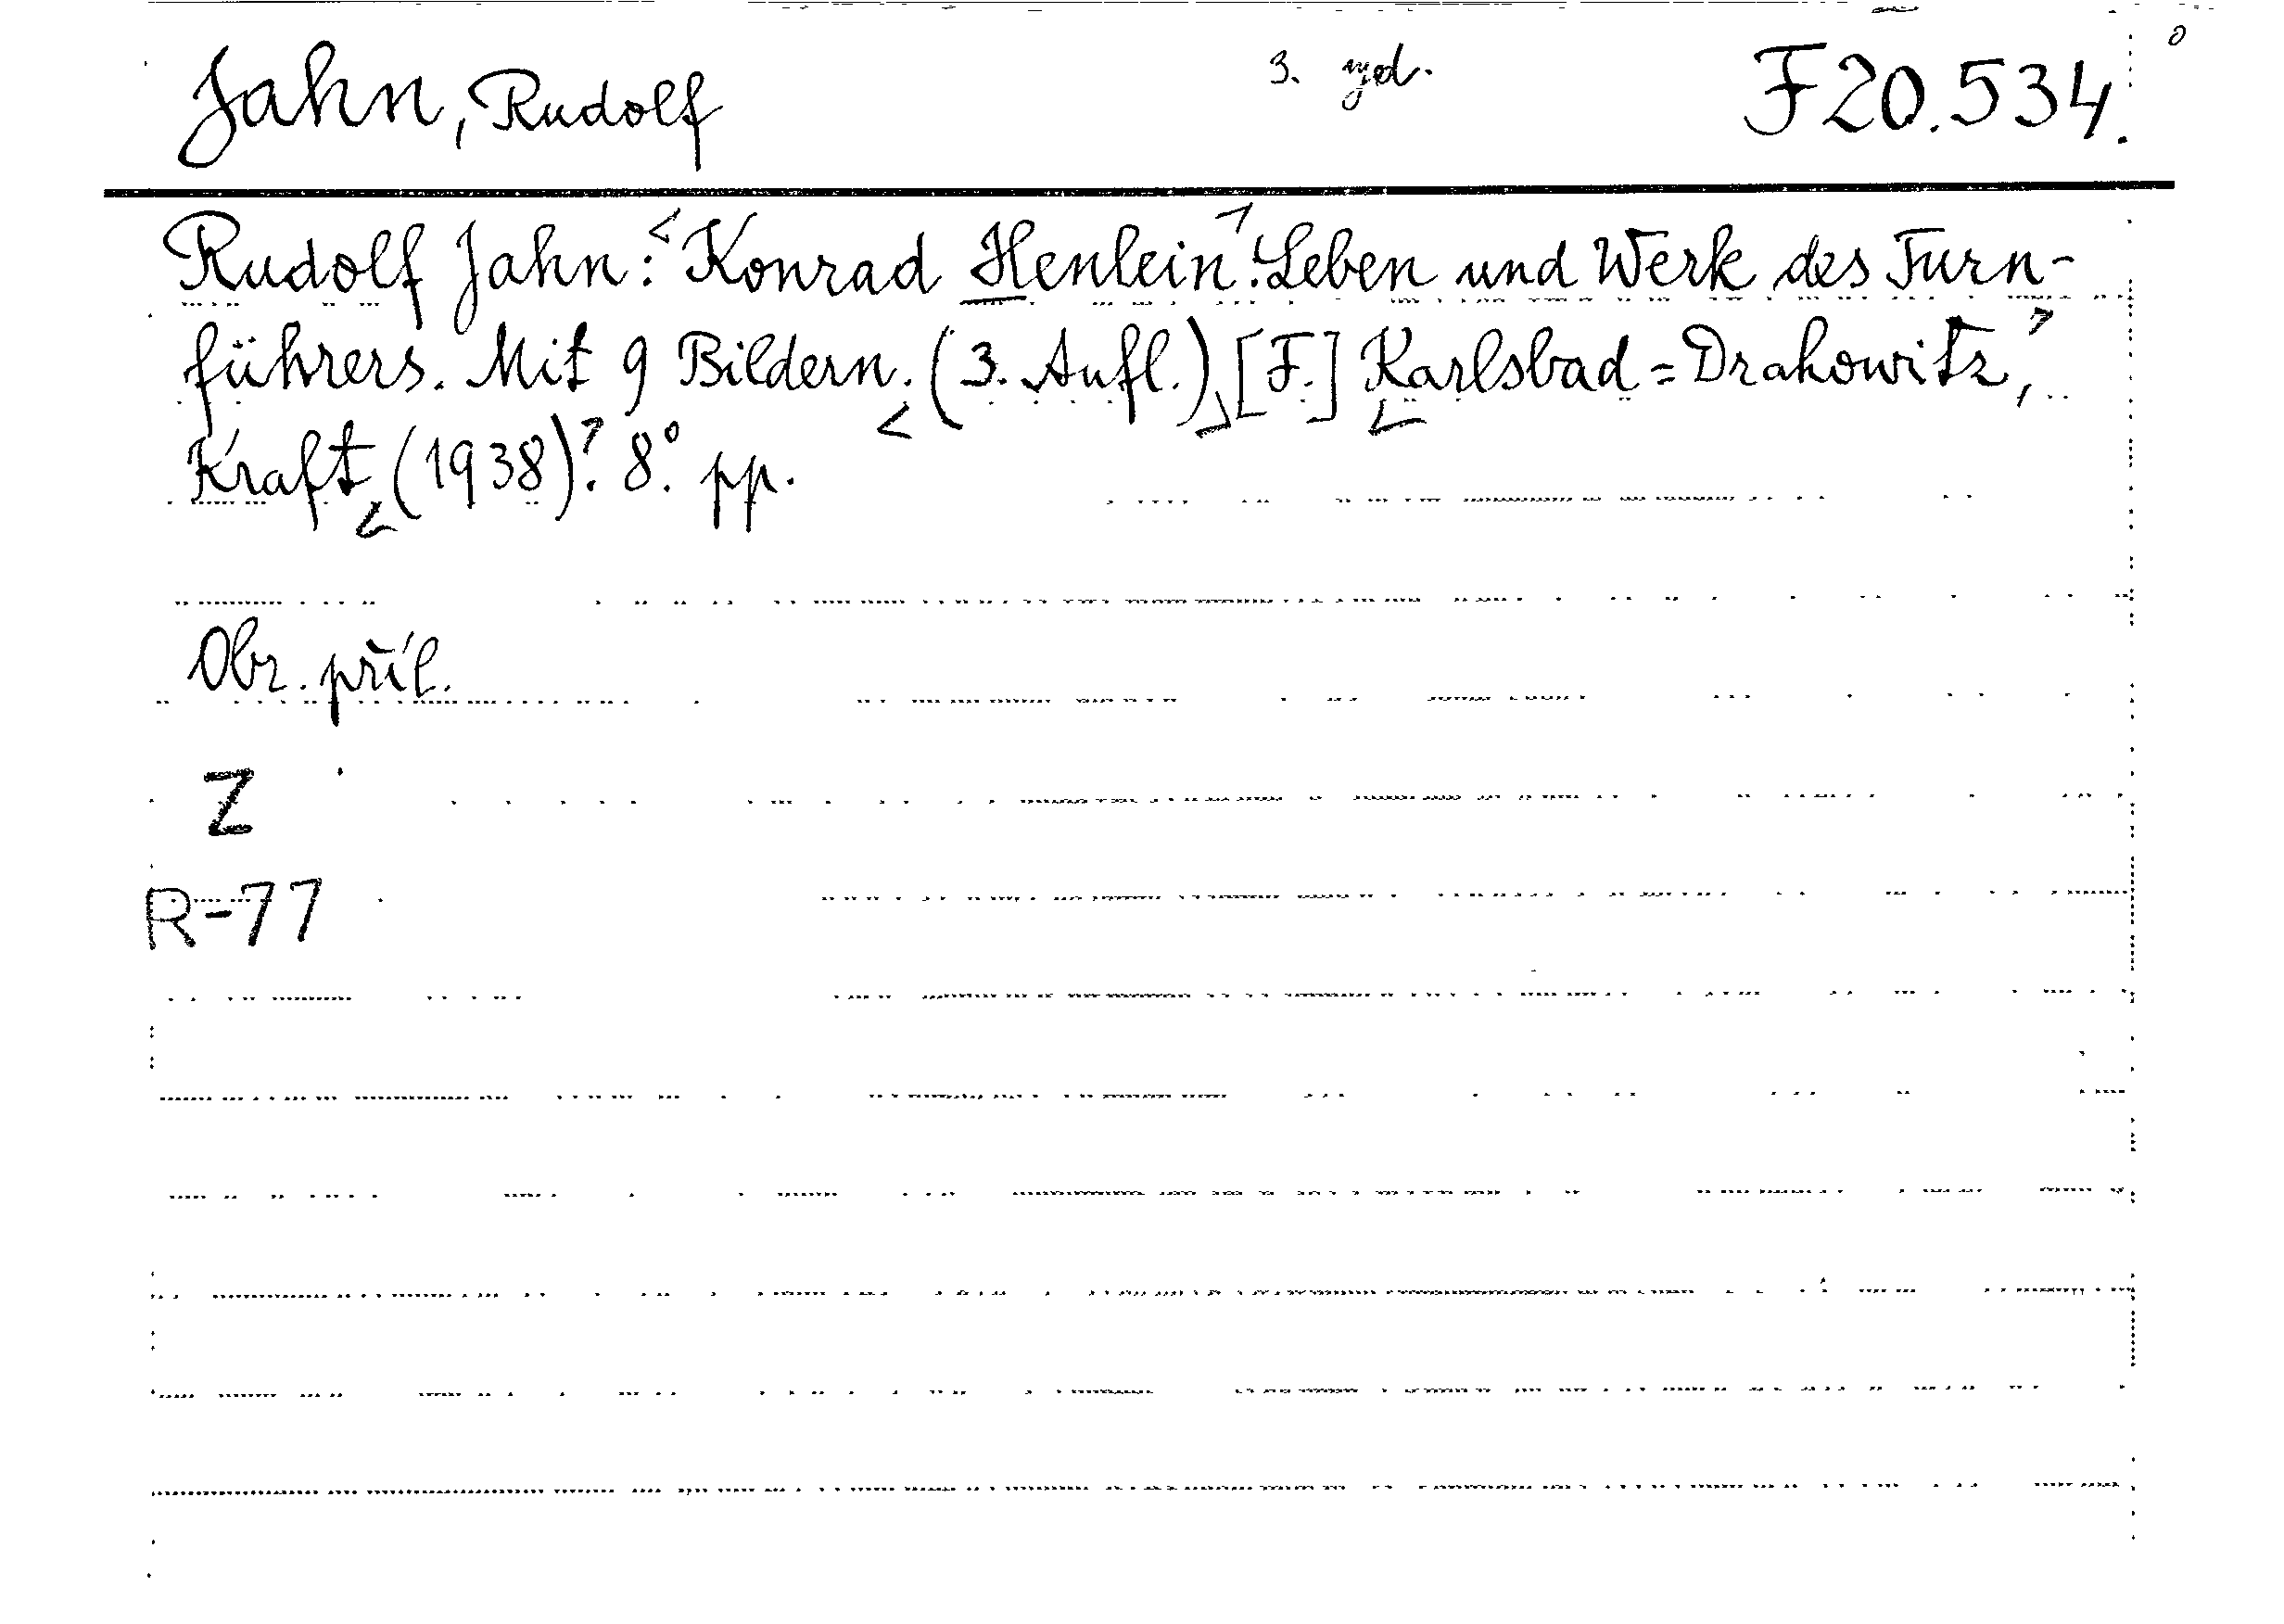 Jahn, Rudolf 3. vyd. F 20.534.
Rudolf Jahn: <Konrad Henlein>. Leben und Werk des Turn-
führers. Mit 9 Bildern. <(3. Aufl.)> [F.] <Karlsbad=Drahowitz,>
Kraft <(1938)>. 8°. pp.
Obr. příl.
Z
R-77